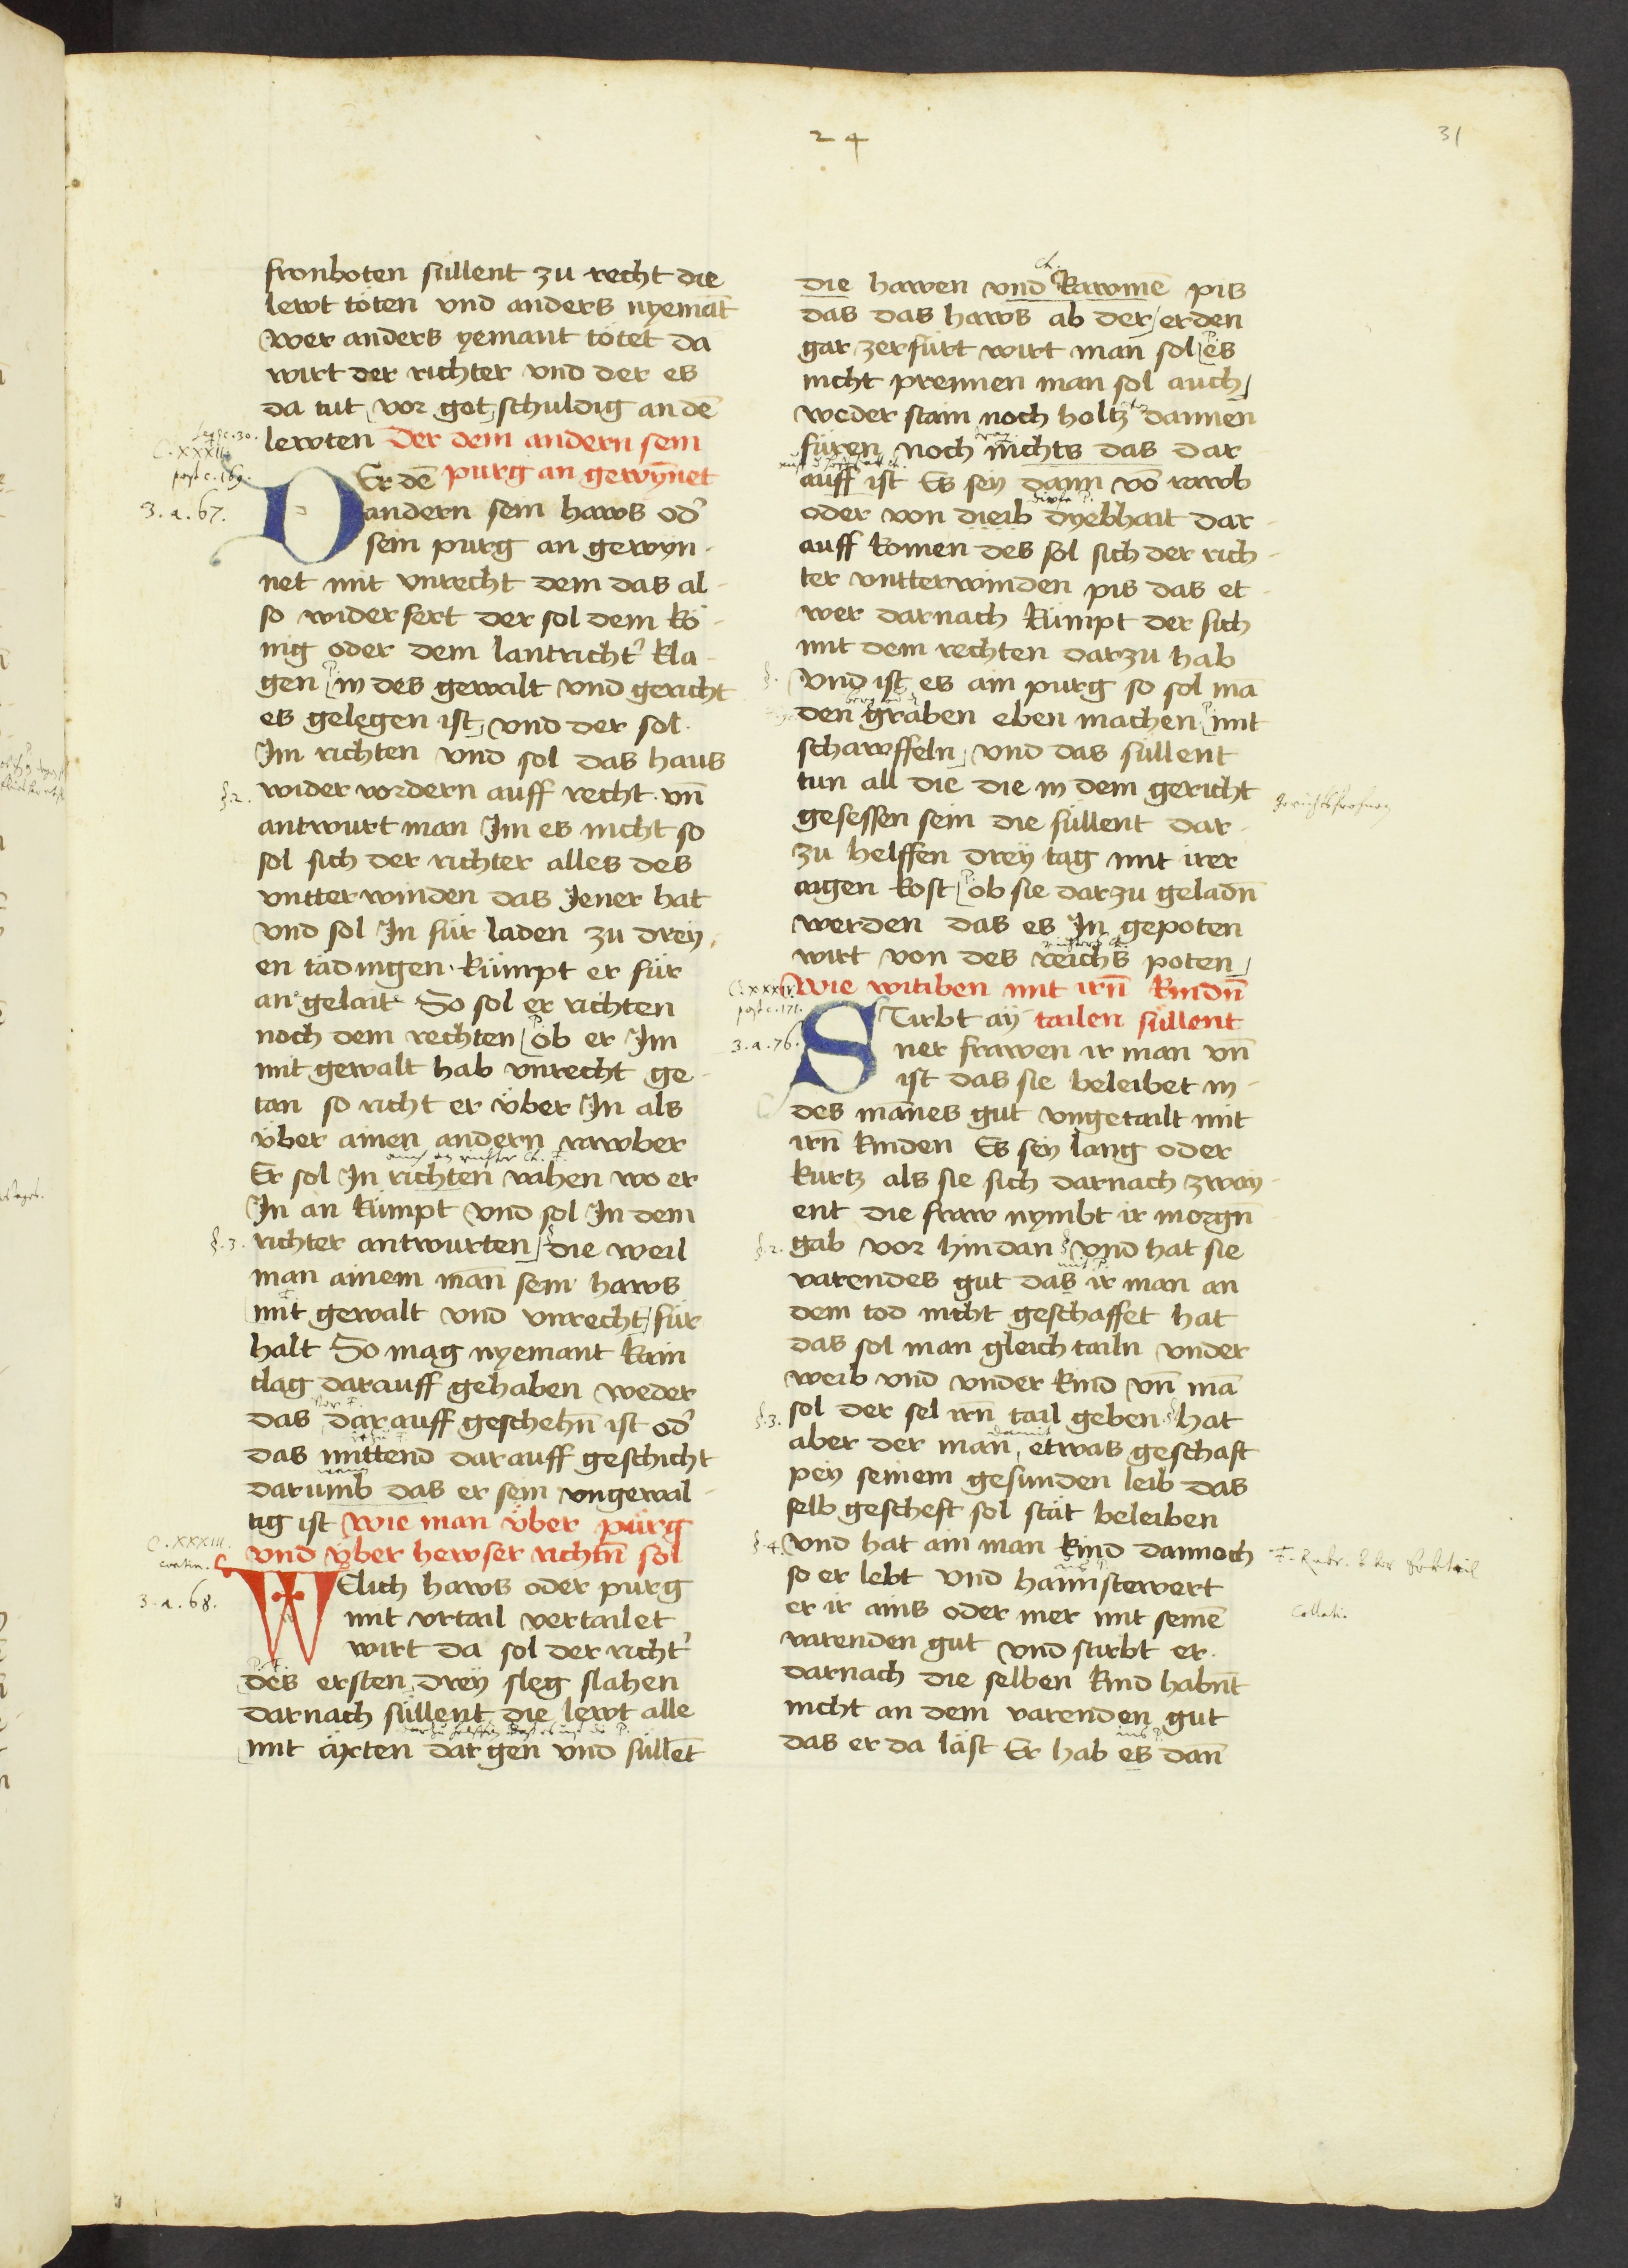 24
31
fronboten süllent zu recht die
lewt töten vnd anders nyemāt
Wer anders yemant tötet da
wirt der richter vnd der es
da tut vor got schuldig an dē
lewten Der dem andern sein
purg an gewȳnet
DEr dē
andern sein haws od'
sein purg an gewyn-
net mit vnrecht dem das al-
so widerfert der sol dem kö-
nig oder dem lantricht' kla-
gen in des gewalt vnd gericht
es gelegen ist vnd der sol
Im richten vnd sol das haus
wider vordern auff recht vn̄
antwurt man Im es nicht so
sol sich der richter alles des
vntterwinden das Jener hat
vnd sol In für laden zu drey-
en tädingen kümpt er für
an gelait So sol er richten
noch dem rechten ob er Im
mit gewalt hab vnrecht ge-
tan so richt er vber In als
vber ainen andern rawber
Er sol In richten vahen wo er
In an kümpt vnd sol In dem
richter antwurten die weil
man ainem man̄ sein haws
mit gewalt vnd vnrecht für
halt So mag nyemant kain
clag darauff gehaben weder
das darauff geschehn̄ ist od'
das mittend darauff geschicht
darumb das er sein vngewal-
tig ist Wie man vber pürg
vnd vber hewser richtn̄ sol
WElich haws oder purg
mit vrtail vertailet
wirt da sol der richt'
des ersten drey sleg slahen
darnach süllent die lewt alle
mit äyxten dar gen vnd süllēt
C. XXXII.
post c. 169.
3. a. 67.
§. 2.
§. 3.
C. XXXIII.
contin.
3. a. 68.
die hawen vnd Rawmē pis
das das haws ab der erden
gar zerfürt wirt man sol es
nicht prennen man sol auch
weder stain noch holtz dannen
füren noch nichts das dar-
auff ist Es sey dann vō rawb
oder von dieib dyebhait dar-
auff komen des sol sich der rich-
ter vntterwinden pis das et-
wer darnach kümpt der sich
mit dem rechten darzu hab
Vnd ist es ain purg so sol mā
den graben eben machen mit
schawffeln vnd das süllent
tun all die die in dem gericht
gesessen sein die süllent dar-
zu helffen drey tag mit irer
aigen kost ob sie darzu geladn̄
werden das es In gepoten
wirt von des reichs poten
Wie witiben mit irn̄ kindn̄
tailen süllent
STirbt ay-
ner frawen ir man vn̄
ist das sie beleibet in
des mānes gut vngetailt mit
irn̄ kinden Es sey lang oder
kurtz als sie sich darnach zway-
ent die fraw nymbt ir morgn̄
gab vor hindan vnd hat sie
varendes gut das ir man an
dem tod nicht geschaffet hat
das sol man gleich tailn vnder
weib vnd vnder kind vn̄ mā
sol der sel irn̄ tail geben hat
aber der man etwas geschaft
pey seinem gesunden leib das
selb gescheft sol stät beleiben
Vnd hat ain man kind dannoch
so er lebt vnd haimstewert
er ir ains oder mer mit seinē
varenden gut vnd stirbt er
darnach die selben kind habnt̄
nicht an dem varenden gut
das er da läst Er hab es dan̄
C. XXXIV.
post c. 171.
3. a. 76.
§. 2.
§. 3.
§. 4.